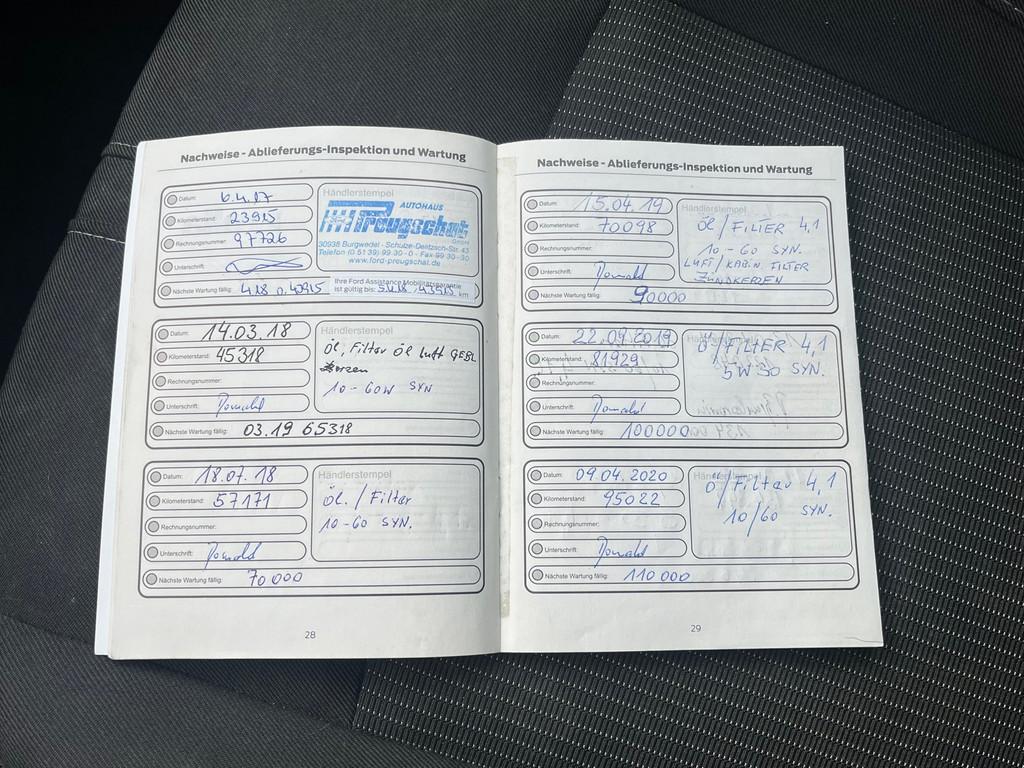 Nachweise - Ablieferungs-Inspektion und Wartung
Datum: 6.4.17
Kilometerstand: 23915
Rechnungsnummer: 97726
Unterschrift:
Nächste Wartung fällig: 4.18 o. 43915
Händlerstempel
AUTOHAUS
Preugschat
GmbH
30938 Burgwedel - Schulze-Delitzsch-Str. 43
Telefon (0 51 39) 99 30 - 0 - Fax 99 30 - 30
www.ford-preugschat.de
Ihre Ford Assistance Mobilitätsgarantie
ist gültig bis: 5.4.18 / 43915 km
Datum: 14.03.18
Kilometerstand: 45318
Rechnungsnummer:
Unterschrift:
Nächste Wartung fällig: 03.19 65318
Händlerstempel
Öl, Filter Öl luft GEBL
kerzen
10-60W SYN
Datum: 18.07.18
Kilometerstand: 57171
Rechnungsnummer:
Unterschrift:
Nächste Wartung fällig: 70 000
Händlerstempel
Öl./Filter
10-60 SYN.
28
Nachweise - Ablieferungs-Inspektion und Wartung
Datum: 15.04.19
Kilometerstand: 70098
Rechnungsnummer:
Unterschrift:
Nächste Wartung fällig: 90000
Händlerstempel
Öl/FILTER 4,1
10-60 SYN.
LUFT/KABIN. FILTER
ZÜNDKERZEN
Datum: 22.09.2019
Kilometerstand: 81929
Rechnungsnummer:
Unterschrift:
Nächste Wartung fällig: 100000
Händlerstempel
Ö/FILTER 4,1
5W30 SYN.
Datum: 09.04.2020
Kilometerstand: 95022
Rechnungsnummer:
Unterschrift:
Nächste Wartung fällig: 110 000
Händlerstempel
Ö/Filter 4,1
10/60 SYN.
29